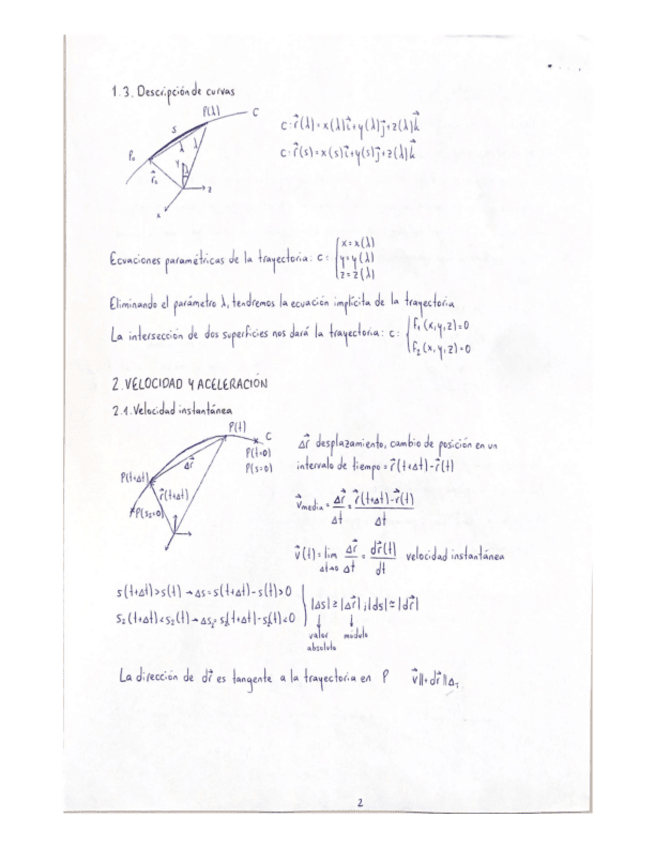 1.3. Descripción de curvas
P(λ) C
S
P₀ λ
r⃗₀ y
z
x
C: r⃗(λ)=x(λ)i⃗+y(λ)j⃗+z(λ)k⃗
C: r⃗(s)=x(s)i⃗+y(s)j⃗+z(λ)k⃗
Ecuaciones paramétricas de la trayectoria: C: { x=x(λ)
y=y(λ)
z=z(λ)
Eliminando el parámetro λ, tendremos la ecuación implícita de la trayectoria
La intersección de dos superficies nos dará la trayectoria: C: { f₁(x,y,z)=0
f₂(x,y,z)=0
2. VELOCIDAD Y ACELERACIÓN
2.1. Velocidad instantánea
P(t)
C
P(t=0)
P(s=0)
Δr⃗
P(t+Δt)
r⃗(t+Δt)
P(s₂=0)
Δr⃗ desplazamiento, cambio de posición en un
intervalo de tiempo = r⃗(t+Δt)-r⃗(t)
v⃗media = Δr⃗/Δt = r⃗(t+Δt)-r⃗(t)/Δt
v⃗(t)= lim Δt→0 Δr⃗/Δt = dr⃗(t)/dt velocidad instantánea
s(t+Δt)>s(t) → Δs=s(t+Δt)-s(t)>0
s₂(t+Δt)<s₂(t) → Δs₂=s₂(t+Δt)-s₂(t)<0
|Δs|≥|Δr⃗| ; |ds|≃|dr⃗|
valor módulo
absoluto
La dirección de dr⃗ es tangente a la trayectoria en P
2